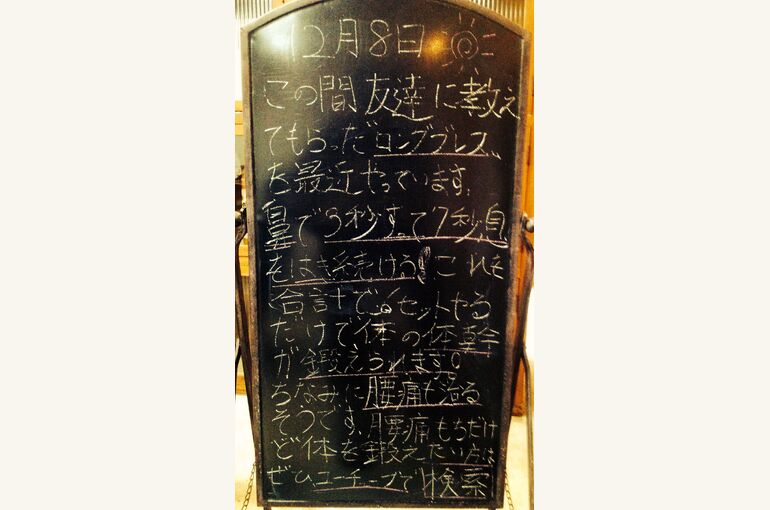 12月8日
この間友達に教え
てもらった"ロングブレス"
を最近やっています。
鼻で3秒すって7秒息
をはき続ける!これを
合計で6セットやる
だけで体の体幹
が鍛えられます。
ちなみに腰痛も治る
そうです。腰痛もちだけ
ど体を鍛えたい方は
ぜひユーチューブで検索